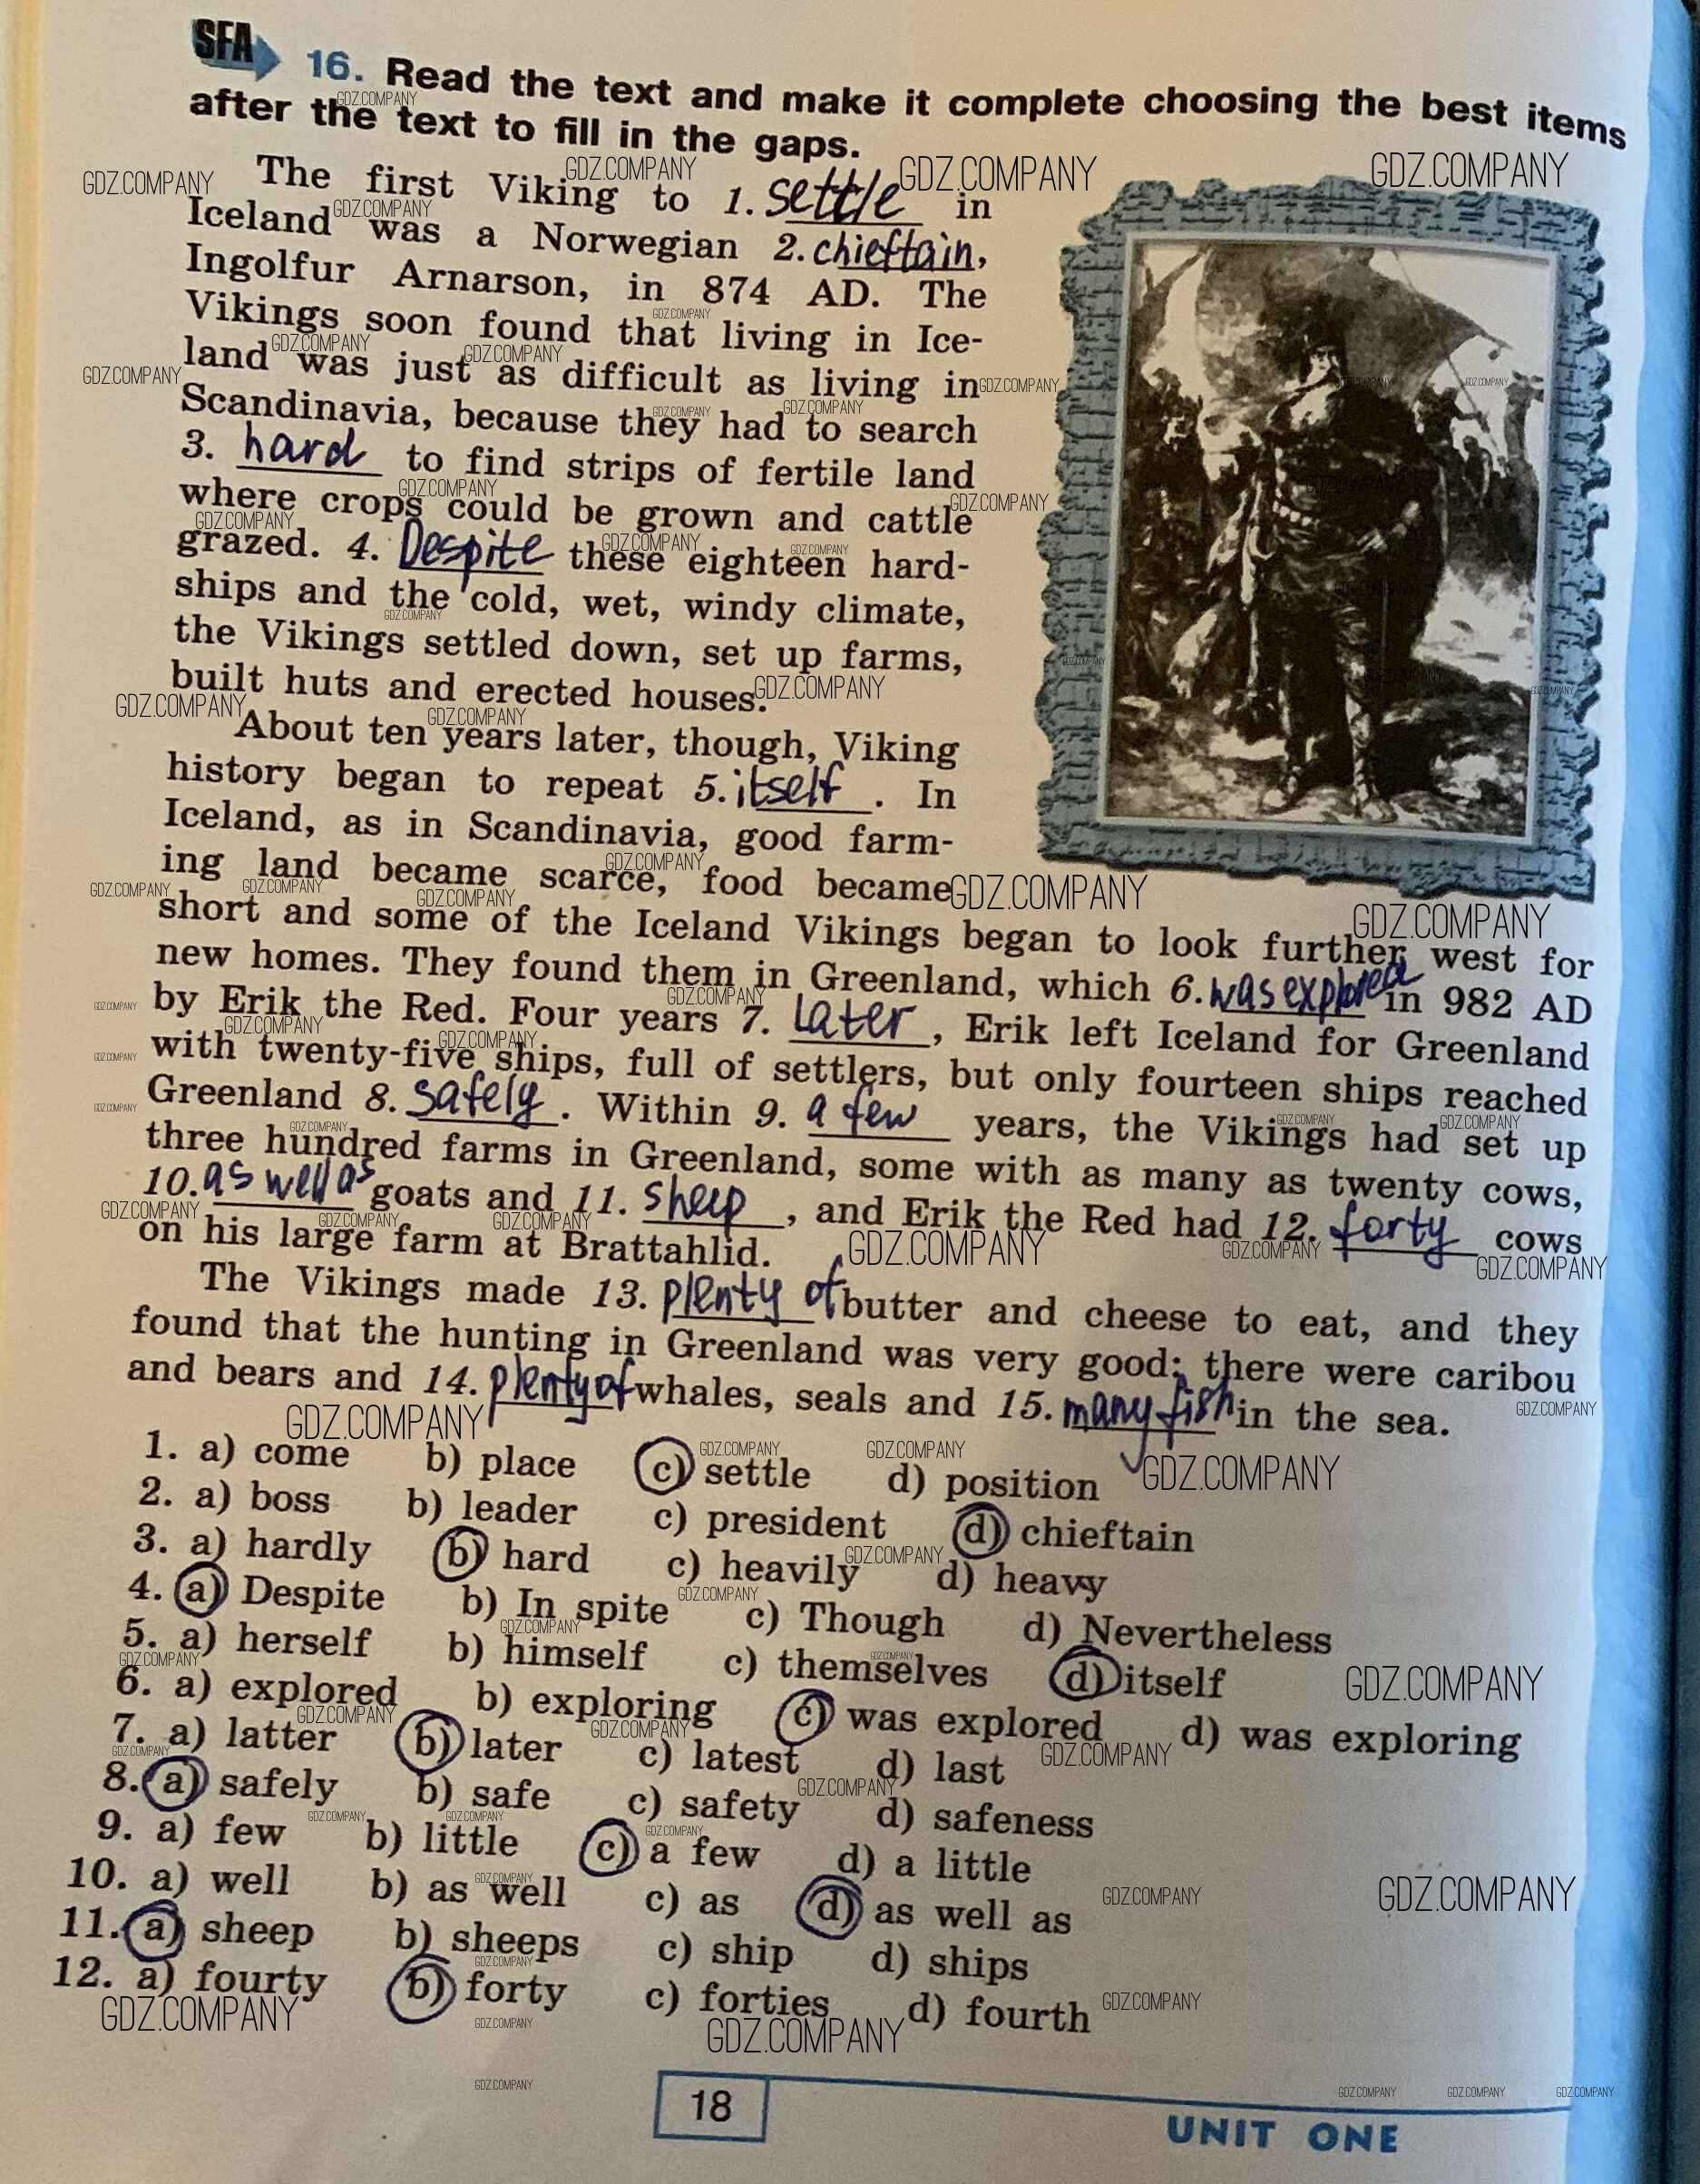 SFA 16. Read the text and make it complete choosing the best items
after the text to fill in the gaps.
The first Viking to 1. settle in
Iceland was a Norwegian 2. chieftain,
Ingolfur Arnarson, in 874 AD. The
Vikings soon found that living in Ice-
land was just as difficult as living in
Scandinavia, because they had to search
3. hard to find strips of fertile land
where crops could be grown and cattle
grazed. 4. Despite these eighteen hard-
ships and the cold, wet, windy climate,
the Vikings settled down, set up farms,
built huts and erected houses.
About ten years later, though, Viking
history began to repeat 5. itself. In
Iceland, as in Scandinavia, good farm-
ing land became scarce, food became
short and some of the Iceland Vikings began to look further west for
new homes. They found them in Greenland, which 6. was explored in 982 AD
by Erik the Red. Four years 7. Later, Erik left Iceland for Greenland
with twenty-five ships, full of settlers, but only fourteen ships reached
Greenland 8. safely. Within 9. a few years, the Vikings had set up
three hundred farms in Greenland, some with as many as twenty cows,
10. as well as goats and 11. sheep, and Erik the Red had 12. forty cows
on his large farm at Brattahlid.
The Vikings made 13. plenty of butter and cheese to eat, and they
found that the hunting in Greenland was very good; there were caribou
and bears and 14. plenty of whales, seals and 15. many fish in the sea.
1. a) come b) place c) settle d) position
2. a) boss b) leader c) president d) chieftain
3. a) hardly b) hard c) heavily d) heavy
4. a) Despite b) In spite c) Though d) Nevertheless
5. a) herself b) himself c) themselves d) itself
6. a) explored b) exploring c) was explored d) was exploring
7. a) latter b) later c) latest d) last
8. a) safely b) safe c) safety d) safeness
9. a) few b) little c) a few d) a little
10. a) well b) as well c) as d) as well as
11. a) sheep b) sheeps c) ship d) ships
12. a) fourty b) forty c) forties d) fourth
18
UNIT ONE
GDZ.COMPANY